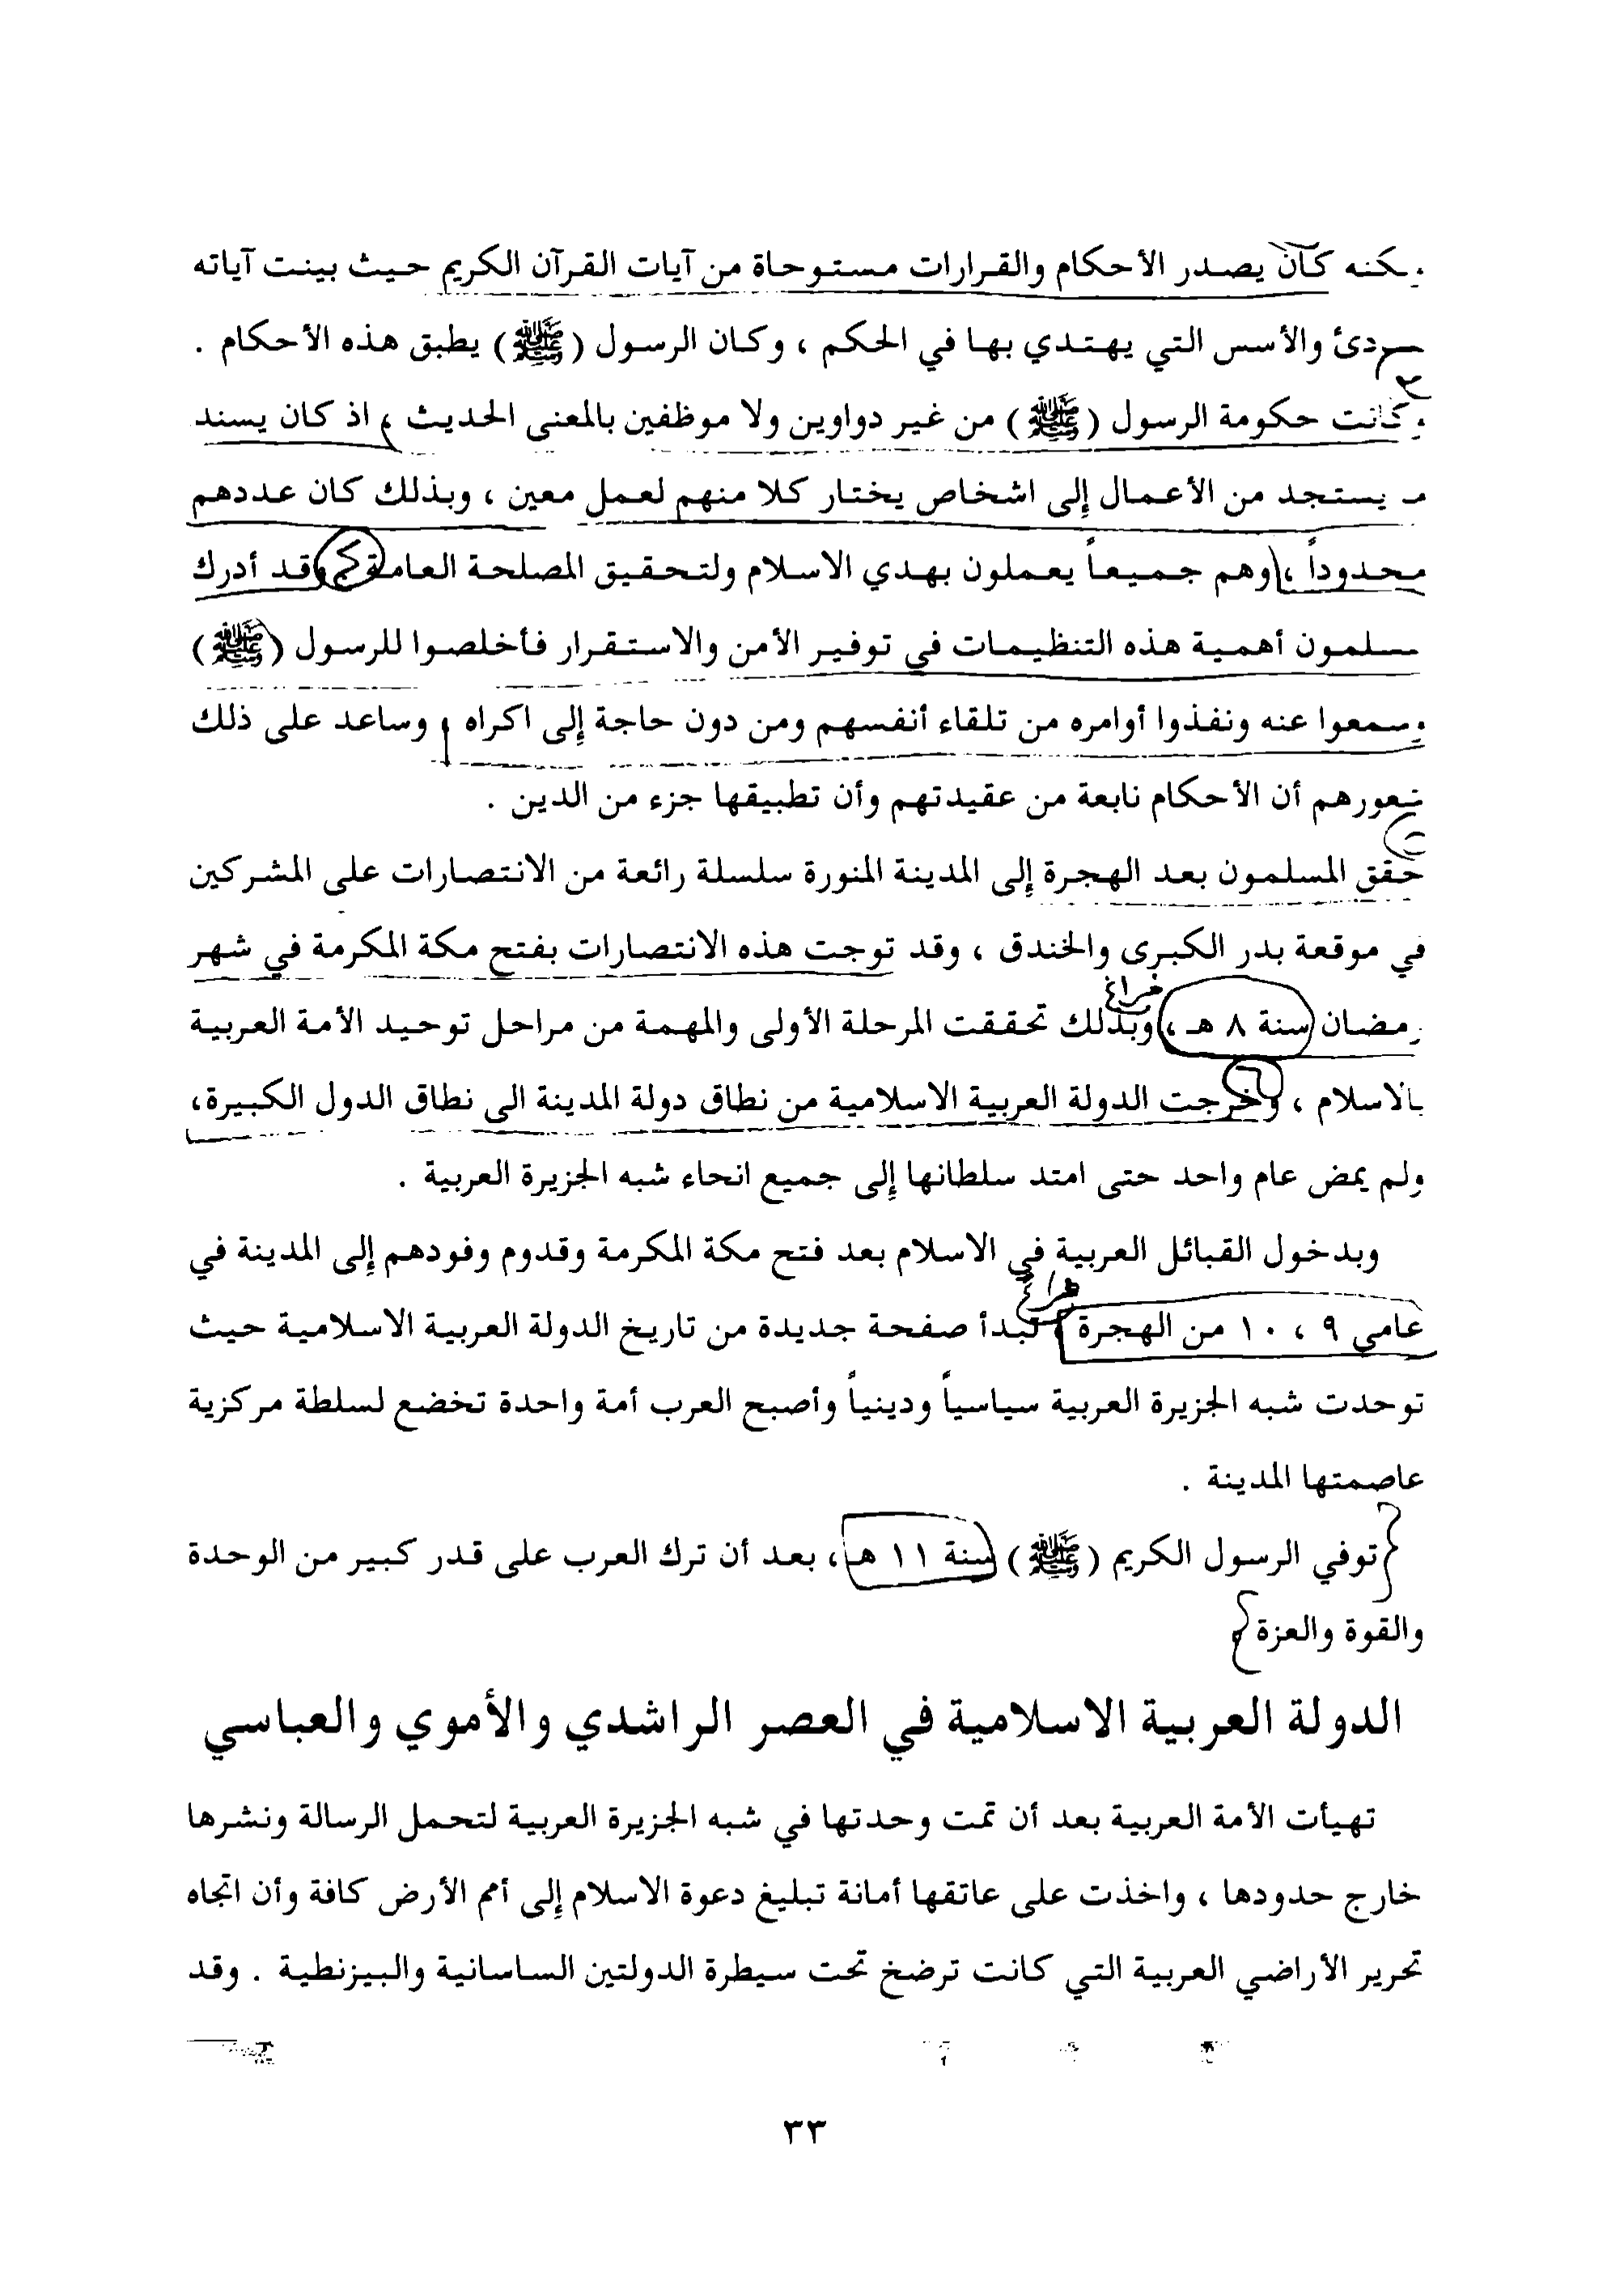 ولكنه كان يصدر الأحكام والقرارات مستوحاة من آيات القرآن الكريم حيث بينت آياته
والأسس التي يهتدي بها في الحكم ، وكان الرسول (ﷺ) يطبق هذه الأحكام .
وكانت حكومة الرسول (ﷺ) من غير دواوين ولا موظفين بالمعنى الحديث ، اذ كان يسند
ما يستجد من الأعمال إلى اشخاص يختار كلا منهم لعمل معين ، وبذلك كان عددهم
محدوداً ، وهم جميعاً يعملون بهدي الاسلام ولتحقيق المصلحة العامة ، وقد أدرك
المسلمون أهمية هذه التنظيمات في توفير الأمن والاستقرار فأخلصوا للرسول (ﷺ)
وسمعوا عنه ونفذوا أوامره من تلقاء أنفسهم ومن دون حاجة إلى اكراه ، وساعد على ذلك
شعورهم أن الأحكام نابعة من عقيدتهم وأن تطبيقها جزء من الدين .
حقق المسلمون بعد الهجرة إلى المدينة المنورة سلسلة رائعة من الانتصارات على المشركين
في موقعة بدر الكبرى والخندق ، وقد توجت هذه الانتصارات بفتح مكة المكرمة في شهر
فراغ
رمضان سنة ٨ هـ ، وبذلك تحققت المرحلة الأولى والمهمة من مراحل توحيد الأمة العربية
بالاسلام ، وخرجت الدولة العربية الاسلامية من نطاق دولة المدينة الى نطاق الدول الكبيرة،
ولم يمض عام واحد حتى امتد سلطانها إلى جميع انحاء شبه الجزيرة العربية .
وبدخول القبائل العربية في الاسلام بعد فتح مكة المكرمة وقدوم وفودهم إلى المدينة في
فراغ
عامي ٩ ، ١٠ من الهجرة ، تبدأ صفحة جديدة من تاريخ الدولة العربية الاسلامية حيث
توحدت شبه الجزيرة العربية سياسياً ودينياً وأصبح العرب أمة واحدة تخضع لسلطة مركزية
عاصمتها المدينة .
توفي الرسول الكريم (ﷺ) سنة ١١ هـ ، بعد أن ترك العرب على قدر كبير من الوحدة
والقوة والعزة .
الدولة العربية الاسلامية في العصر الراشدي والأموي والعباسي
تهيأت الأمة العربية بعد أن تمت وحدتها في شبه الجزيرة العربية لتحمل الرسالة ونشرها
خارج حدودها ، واخذت على عاتقها أمانة تبليغ دعوة الاسلام إلى أمم الأرض كافة وأن اتجاه
تحرير الأراضي العربية التي كانت ترضخ تحت سيطرة الدولتين الساسانية والبيزنطية . وقد
٣٣